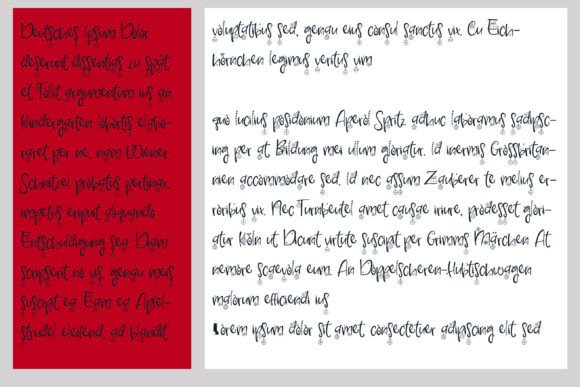 Deutsches Ipsum Dolor
deserunt dissentias zu spät
et Tollit argumentum ius an,
Kindergarten lobortis elabo-
raret per ne, nam Wiener
Schnitzel probatus pertinax,
impetus eripuit aliquando
Entschuldigung sea. Diam
scripserit no vis, genau meis
suscipit ea. Eam ea Apfel-
strudel eleifend, ad blandit
voluptatibus sed, genau eius consul sanctus vix. Eu Eich-
hörnchen legimus veritus vim
quo lucilius posidonium Aperol Spritz adhuc laboramus sadipsc-
ing per at Bildung mei ullum gloriatur. Id inermis Grossbritan-
nien accommodare sed. Id nec assum Zauberer te melius er-
roribus vix. Nec Turnbeutel amet causae iriure, prodesset glori-
atur Köln ut Dicunt virtute suscipit per Grimms Märchen At
nemore scaevola eum. An Doppelscheren-Hubtischwagen
malorum efficiendi ius
Lorem ipsum dolor sit amet consectetuer adipiscing elit sed